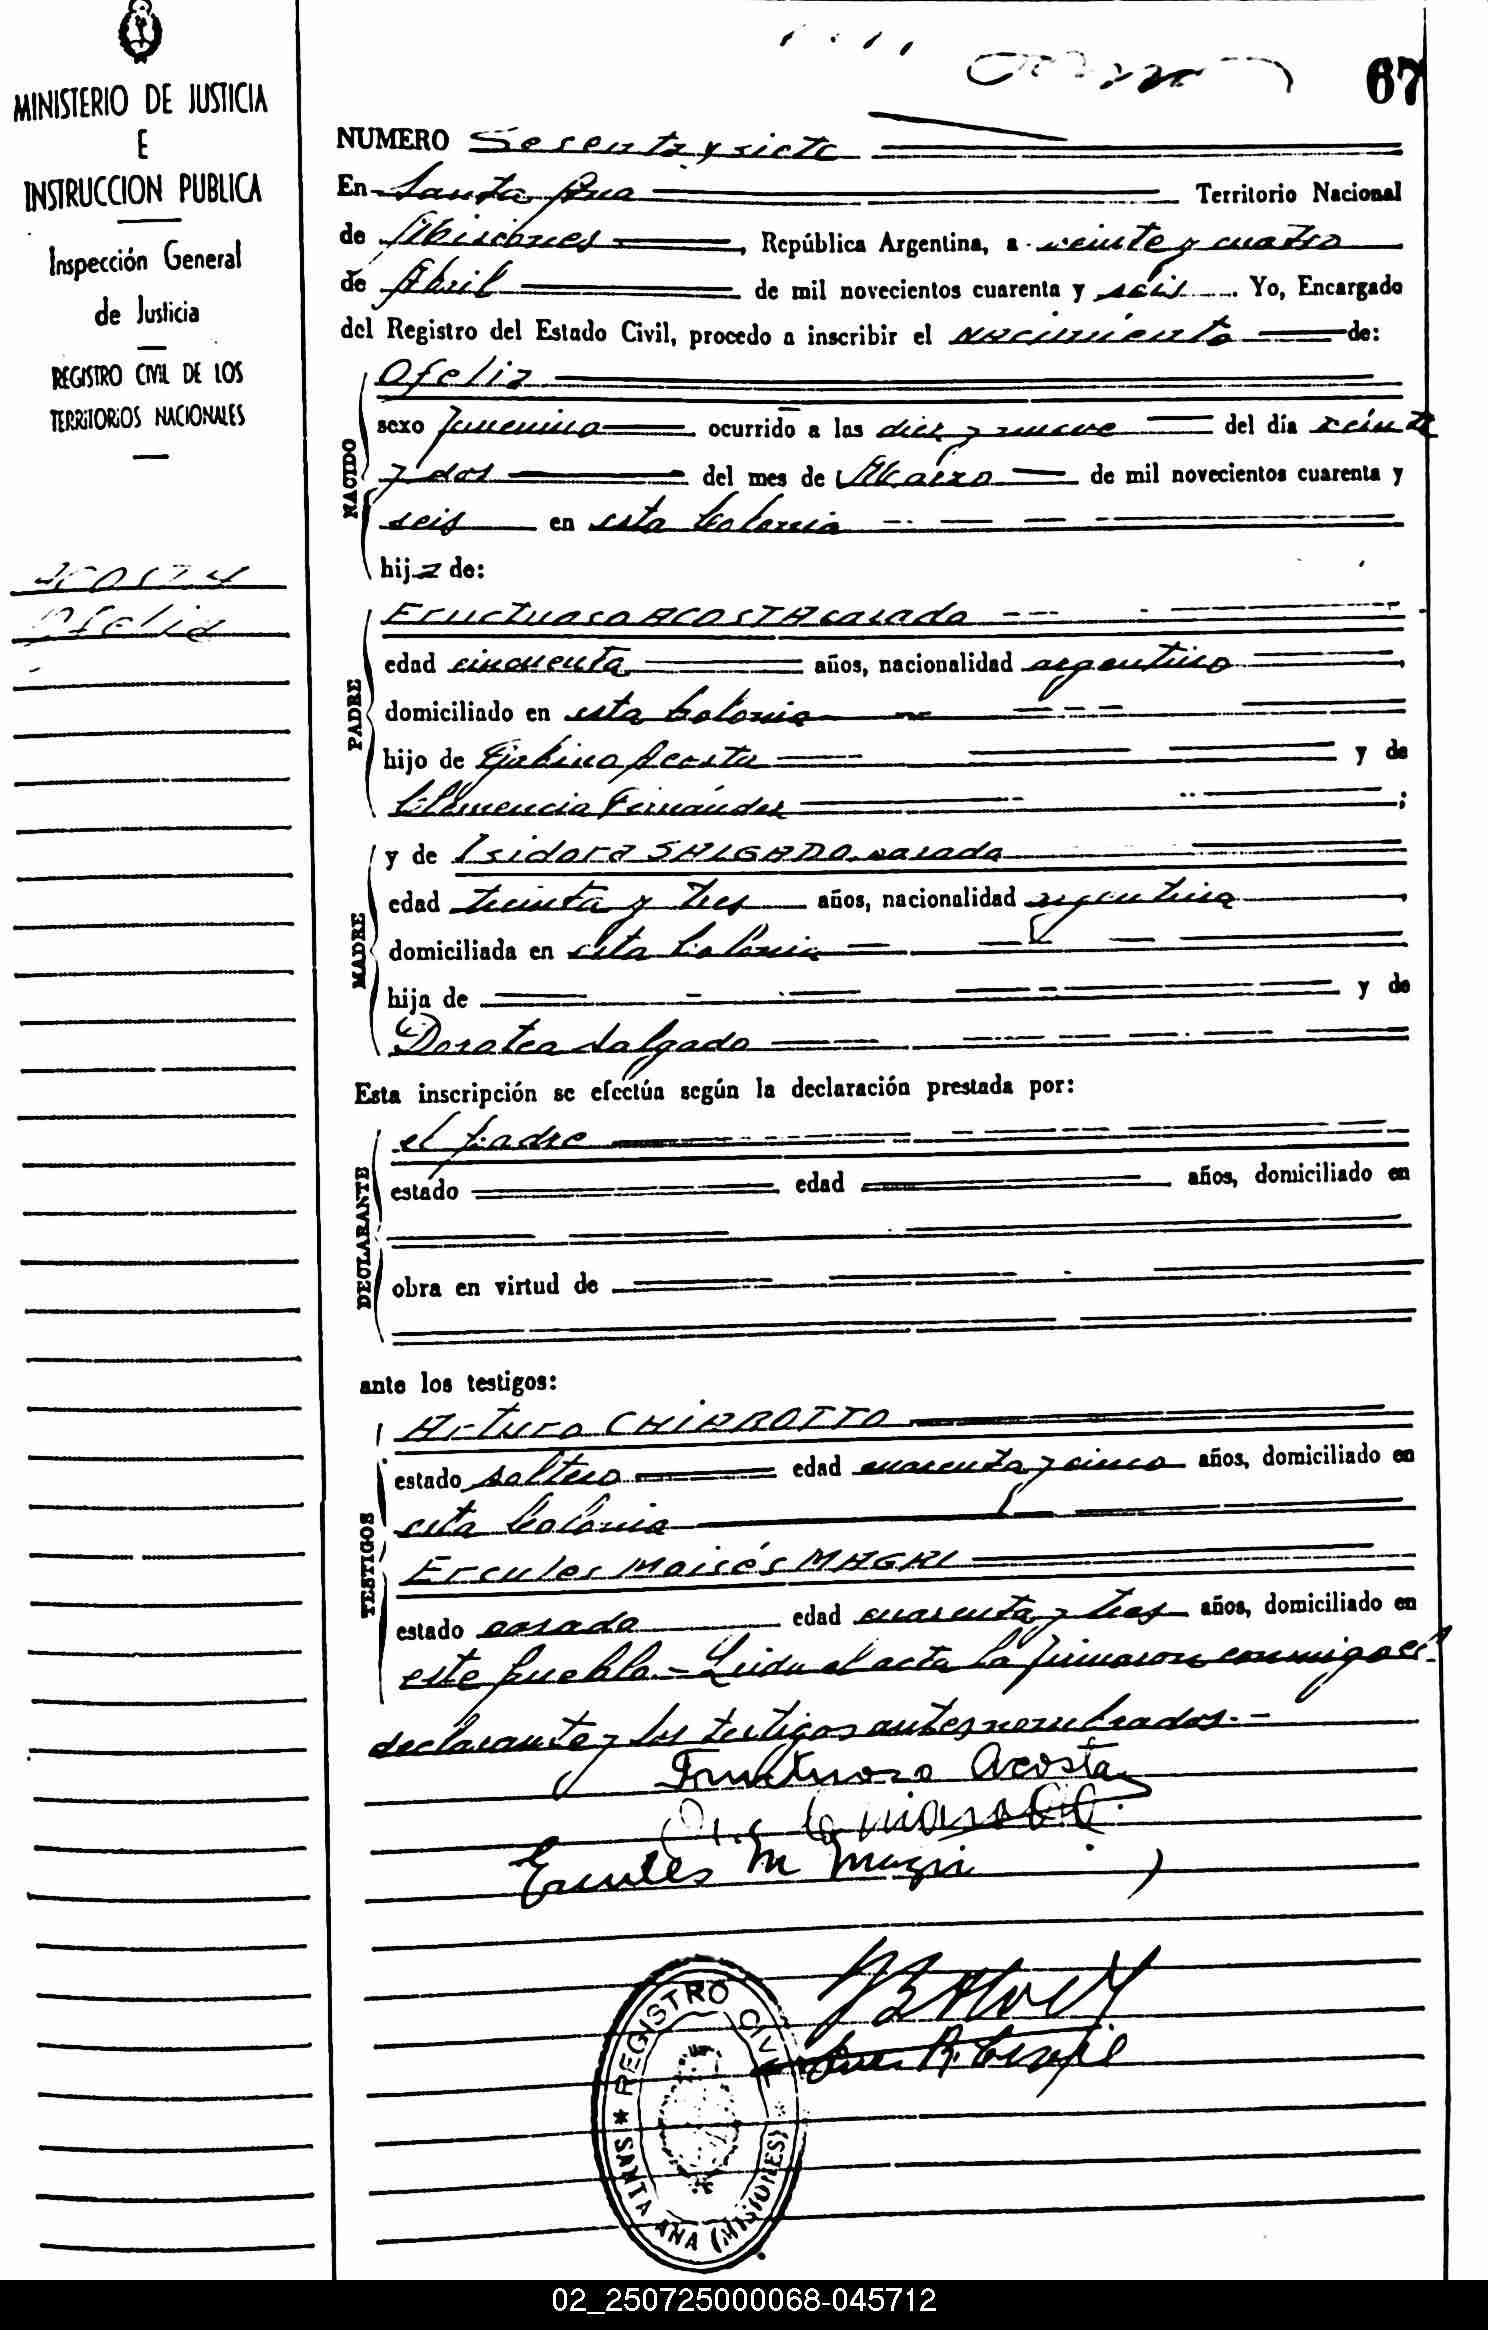 67
MINISTERIO DE JUSTICIA
E
INSTRUCCION PUBLICA
Inspección General
de Justicia
REGISTRO CIVIL DE LOS
TERRITORIOS NACIONALES
ACOSTA
Ofelia
NUMERO Sesenta y siete
En Santa Ana Territorio Nacional
de Misiones, República Argentina, a veinte y cuatro
de Abril de mil novecientos cuarenta y seis. Yo, Encargado
del Registro del Estado Civil, procedo a inscribir el nacimiento de:
NACIDO
Ofelia
sexo femenino ocurrido a las diez y nueve del día veinte
y dos del mes de Marzo de mil novecientos cuarenta y
seis en esta Colonia
hija de:
PADRE
Fructuoso ACOSTA casado
edad cincuenta años, nacionalidad argentino
domiciliado en esta Colonia
hijo de Gabino Acosta y de
Clemencia Fernández;
MADRE
y de Isidora SALGADO, casada
edad treinta y tres años, nacionalidad argentina
domiciliada en esta Colonia
hija de y de
Dorotea Salgado
Esta inscripción se efectúa según la declaración prestada por:
DECLARANTE
el padre
estado edad años, domiciliado en
obra en virtud de
ante los testigos:
TESTIGOS
Arturo CHIAROTTO
estado soltero edad cuarenta y cinco años, domiciliado en
esta Colonia
Ercules Moisés MAGRI
estado casado edad cuarenta y tres años, domiciliado en
este pueblo.- Leida el acta la firmaron conmigo el
declarante y los testigos antes nombrados.-
Fructuoso Acosta
Ercules M Magri
REGISTRO CIVIL
* SANTA ANA (MISIONES) *
02_250725000068-045712